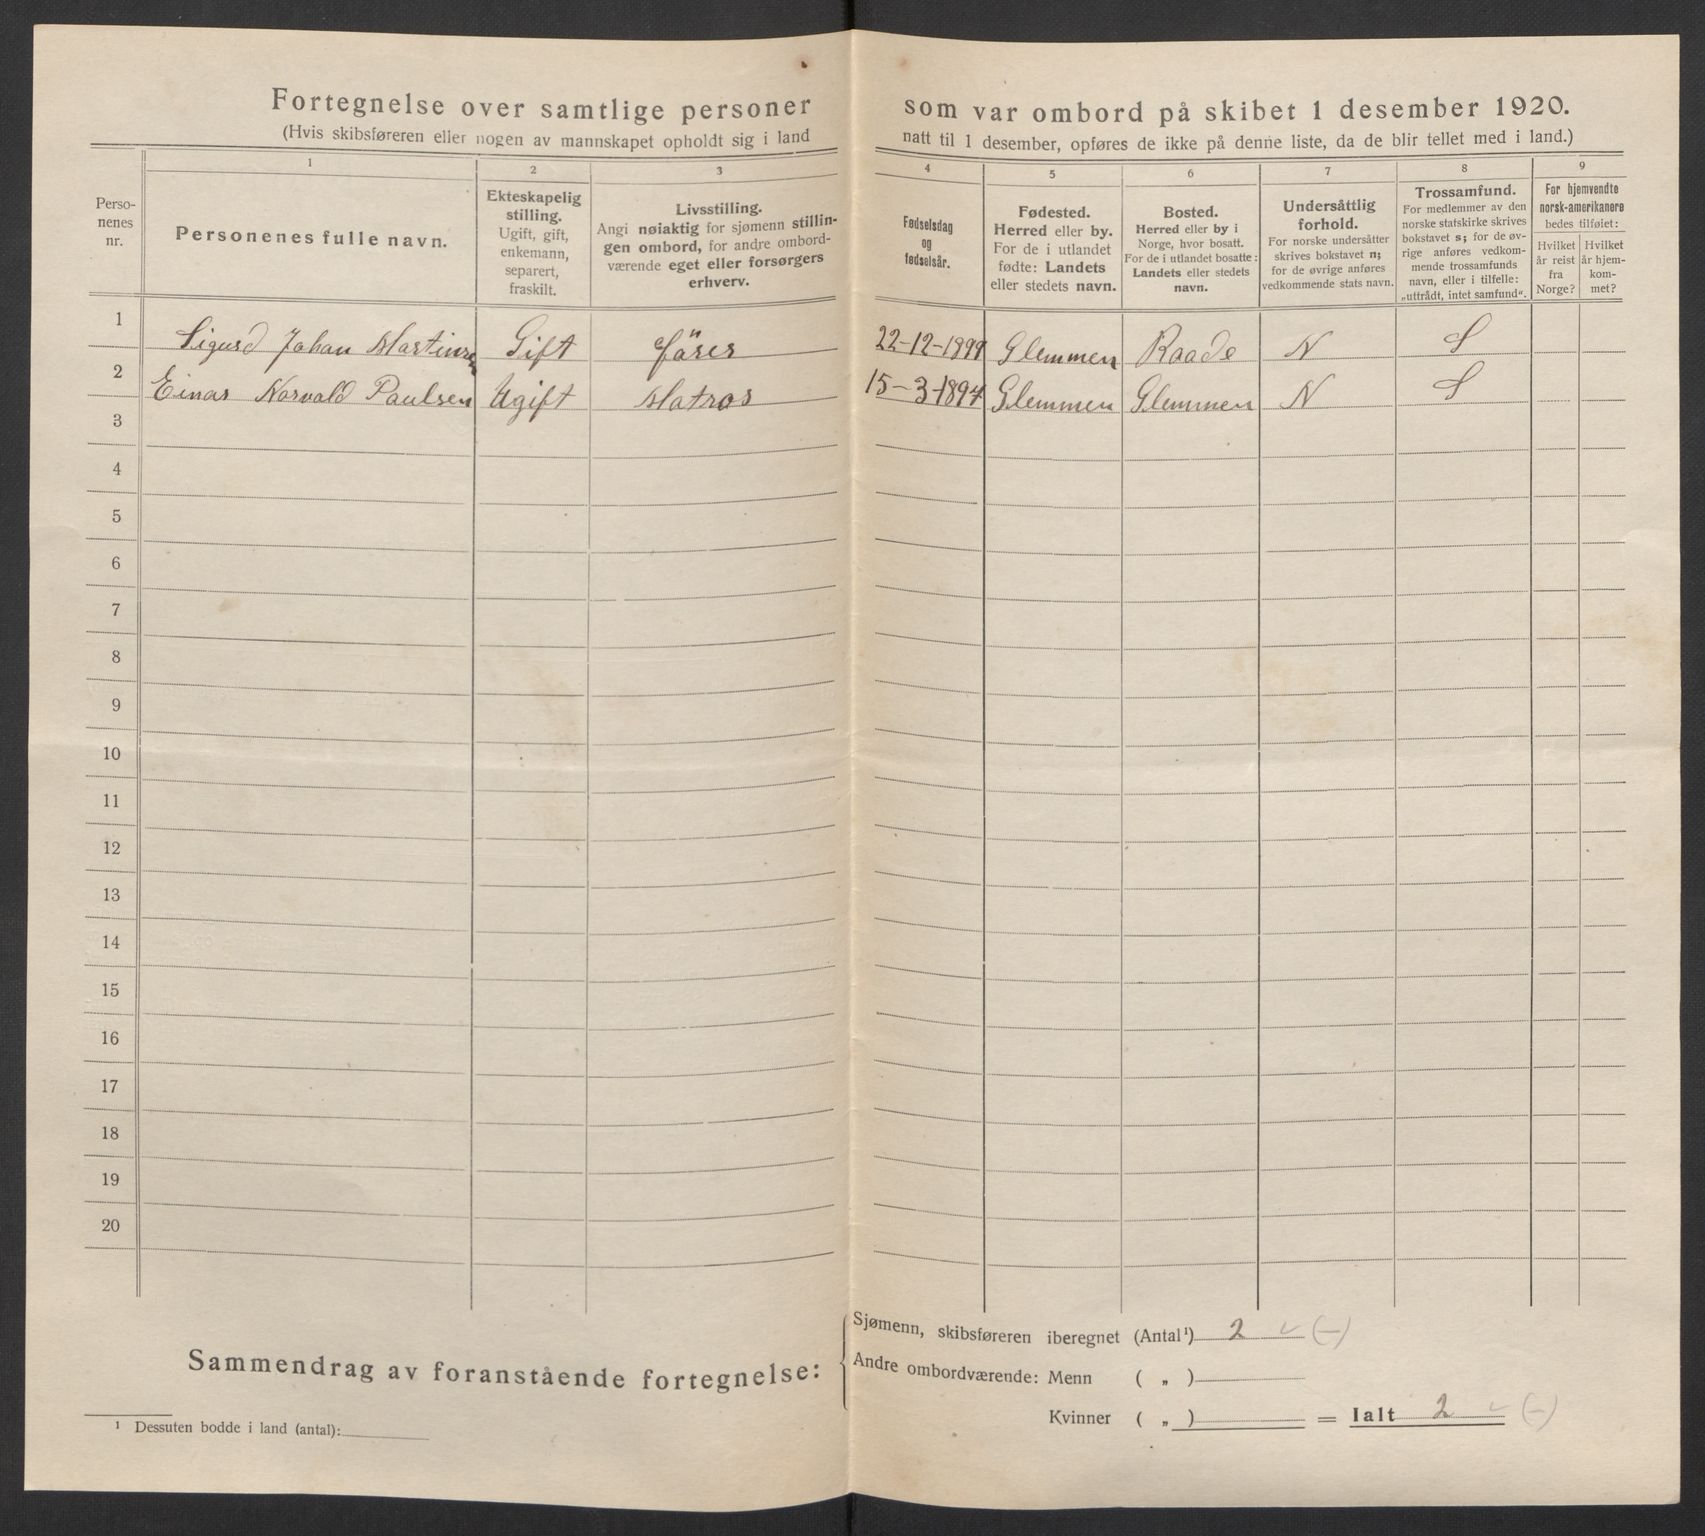 Fortegnelse over samtlige personer som var ombord på skibet 1 desember 1920.
(Hvis skibsføreren eller nogen av mannskapet opholdt sig i land natt til 1 desember, opføres de ikke på denne liste, da de blir tellet med i land.)
1 2 3 4 5 6 7 8 9
Perso-
nenes
nr.
Personenes fulle navn.
Ekteskapelig
stilling.
Ugift, gift,
enkemann,
separert,
fraskilt.
Livsstilling.
Angi nøiaktig for sjømenn stillin-
gen ombord, for andre ombord-
værende eget eller forsørgers
erhverv.
Fødselsdag
og
fødselsår.
Fødested.
Herred eller by.
For de i utlandet
fødte: Landets
eller stedets navn.
Bosted.
Herred eller by i
Norge, hvor bosatt.
For de i utlandet bosatte:
Landets eller stedets
navn.
Undersåttlig
forhold.
For norske undersåtter
skrives bokstavet n;
for de øvrige anføres
vedkommende stats navn.
Trossamfund.
For medlemmer av den
norske statskirke skrives
bokstavet s; for de øv-
rige anføres vedkom-
mende trossamfunds
navn, eller i tilfelle:
„uttrådt, intet samfund“.
For hjemvendte
norsk-amerikanere
bedes tilføiet:
Hvilket
år reist
fra
Norge?
Hvilket
år hjem-
kom-
met?
1 Sigurd Johan Martinsen Gift förer 22-12-1899 Glemmen Raade N S
2 Einar Norvald Paulsen Ugift Matros 15-3-1894 Glemmen Glemmen N S
3
4
5
6
7
8
9
10
11
12
13
14
15
16
17
18
19
20
Sammendrag av foranstående fortegnelse:
Sjømenn, skibsføreren iberegnet (Antal¹) 2 (-)
Andre ombordværende: Menn ( „ )
Kvinner ( „ ) = Ialt 2 (-)
¹ Dessuten bodde i land (antal):